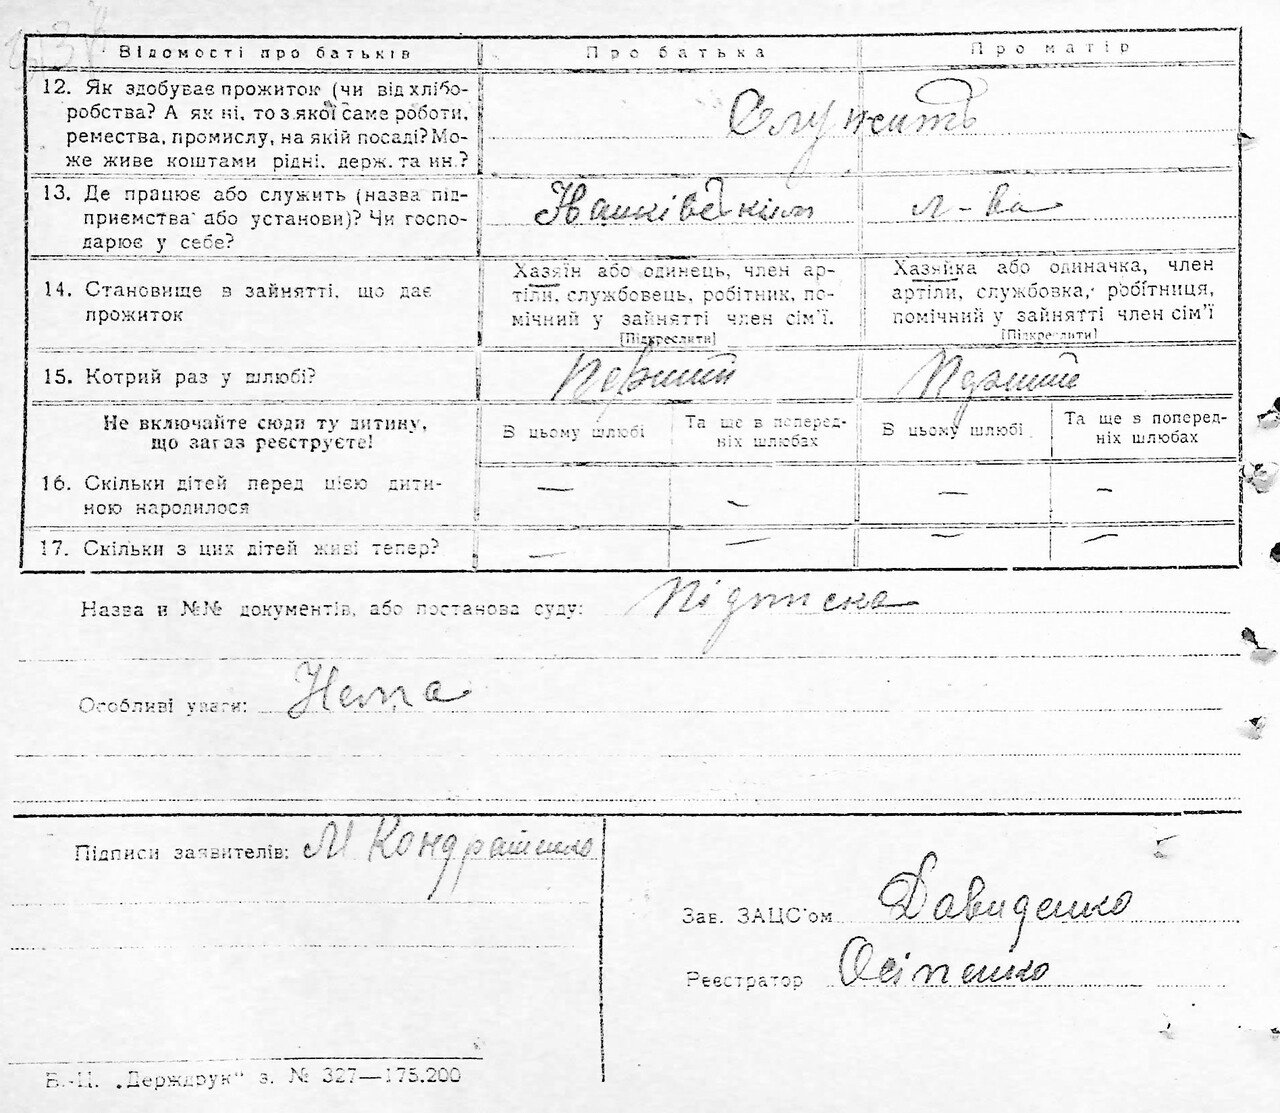 Відомості про батьків Про батька Про матір
12. Як здобуває прожиток (чи від хлібо-
робства? А як ні, то з якої саме роботи,
ремества, промислу, на якій посаді? Мо-
же живе коштами рідні, держ. та ин.?
Служить
13. Де працює або служить (назва під-
приємства або установи)? Чи госпо-
дарює у себе?
л-ва
14. Становище в зайнятті, що дає
прожиток
Хазяїн або одинець, член ар-
тіли, службовець, робітник, по-
мічний у зайнятті член сім'ї.
[Підкреслити]
Хазяйка або одиначка, член
артіли, службовка, робітниця,
помічний у зайнятті член сім'ї
[Підкреслити]
15. Котрий раз у шлюбі? Перший Перший
Не включайте сюди ту дитину,
що зараз реєструєте!
В цьому шлюбі
Та ще в поперед-
ніх шлюбах
В цьому шлюбі
Та ще в поперед-
ніх шлюбах
16. Скільки дітей перед цією дити-
ною народилося
— — — —
17. Скільки з цих дітей живі тепер? — — — —
Назва и №№ документів, або постанова суду: Підписка
Особливі уваги: Нема
Підписи заявителів: М Кондрашенко
Зав. ЗАЦС'ом Давиденко
Реєстратор Осіпенко
Б.-Ц. „Держдрук" з. № 327—175.200